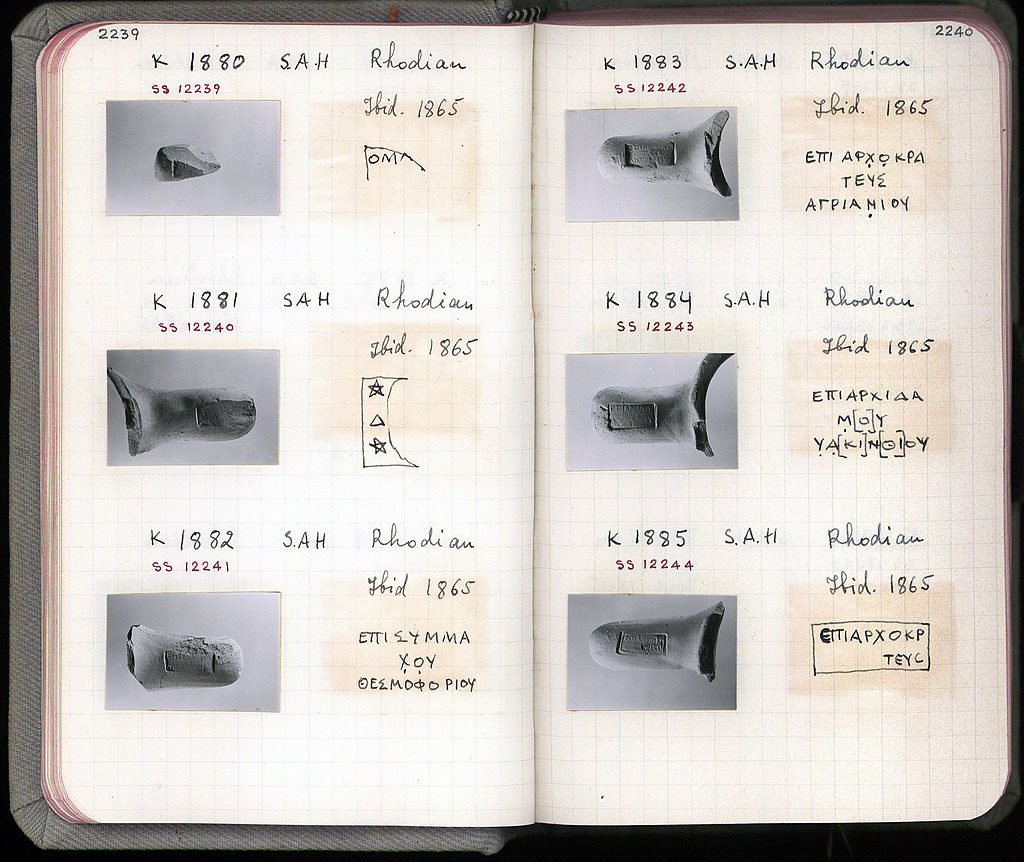 2239
K 1880 S.A.H Rhodian
SS 12239
Ibid. 1865
ΟΜΛ
K 1881 SAH Rhodian
SS 12240
Ibid. 1865
Δ
K 1882 S.A.H Rhodian
SS 12241
Ibid 1865
ΕΠΙΣΥΜΜΑ
Χ̣Ο̣Υ
ΘΕΣΜΟΦΟΡΙΟΥ
2240
K 1883 S.A.H Rhodian
SS 12242
Ibid. 1865
ΕΠΙ ΑΡΧ̣Ο̣ΚΡΑ
ΤΕΥΣ
ΑΓΡΙΑΝ̣ΙΟΥ
K 1884 S.A.H Rhodian
SS 12243
Ibid 1865
ΕΠΙΑΡΧΙΔΑ
Μ̣[Ο]Υ̣
Υ̣Α̣[ΚΙ]Ν̣[ΘΙ]ΟΥ
K 1885 S.A.H Rhodian
SS 12244
Ibid. 1865
ΕΠΙΑΡΧΟΚΡ
ΤΕΥC